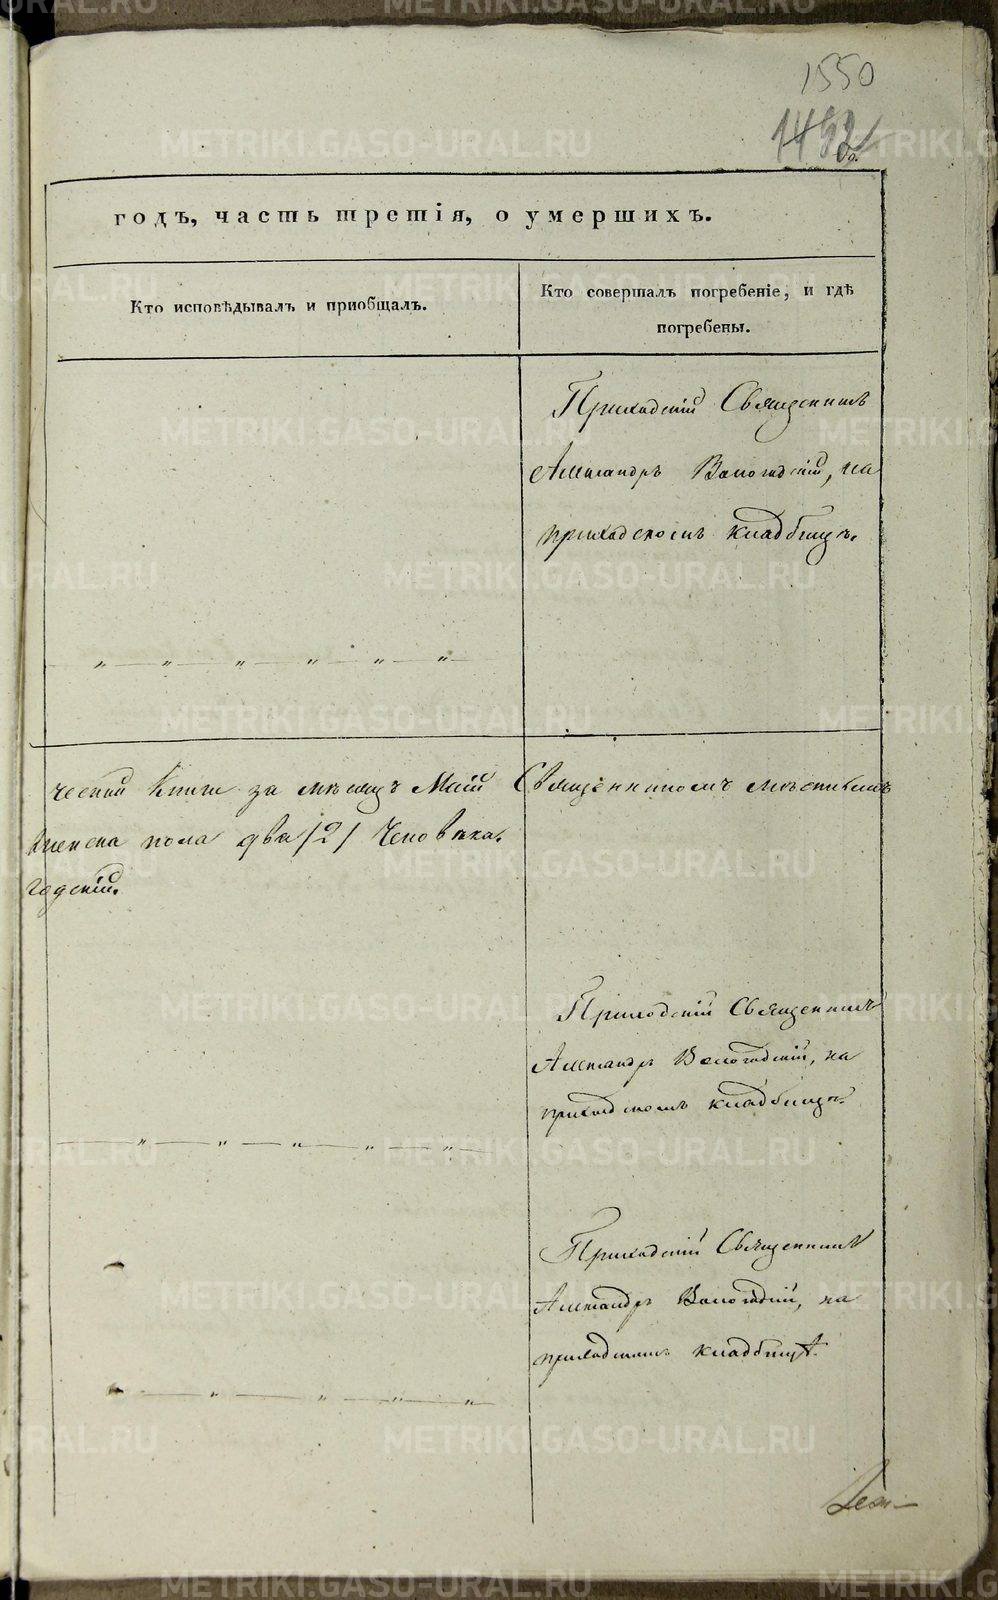 1550
1492
годъ, часть третія, о умершихъ.
Кто исповѣдывалъ и пріобщалъ.
Кто совершалъ погребеніе, и гдѣ
погребены.
Приходскій Священникъ
Александръ Вологодскій, на
приходскомъ кладбищѣ.
ческой Книги за мѣсяцъ Маій Священникомъ
женска пола два /2/ человѣка.
годскій.
Приходскій Священникъ
Александръ Вологодскій, на
приходскомъ кладбищѣ.
Приходскій Священникъ
Александръ Вологодскій, на
приходскомъ кладбищѣ.
METRIKI.GASO-URAL.RU